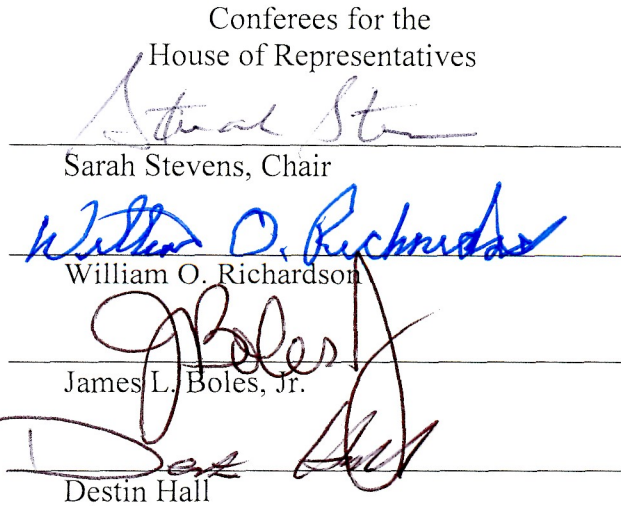 Conferees for the
House of Representatives
Sarah Stevens, Chair
William O. Richardson
William O. Richardson
JBoles Jr
James L. Boles, Jr.
Destin Hall